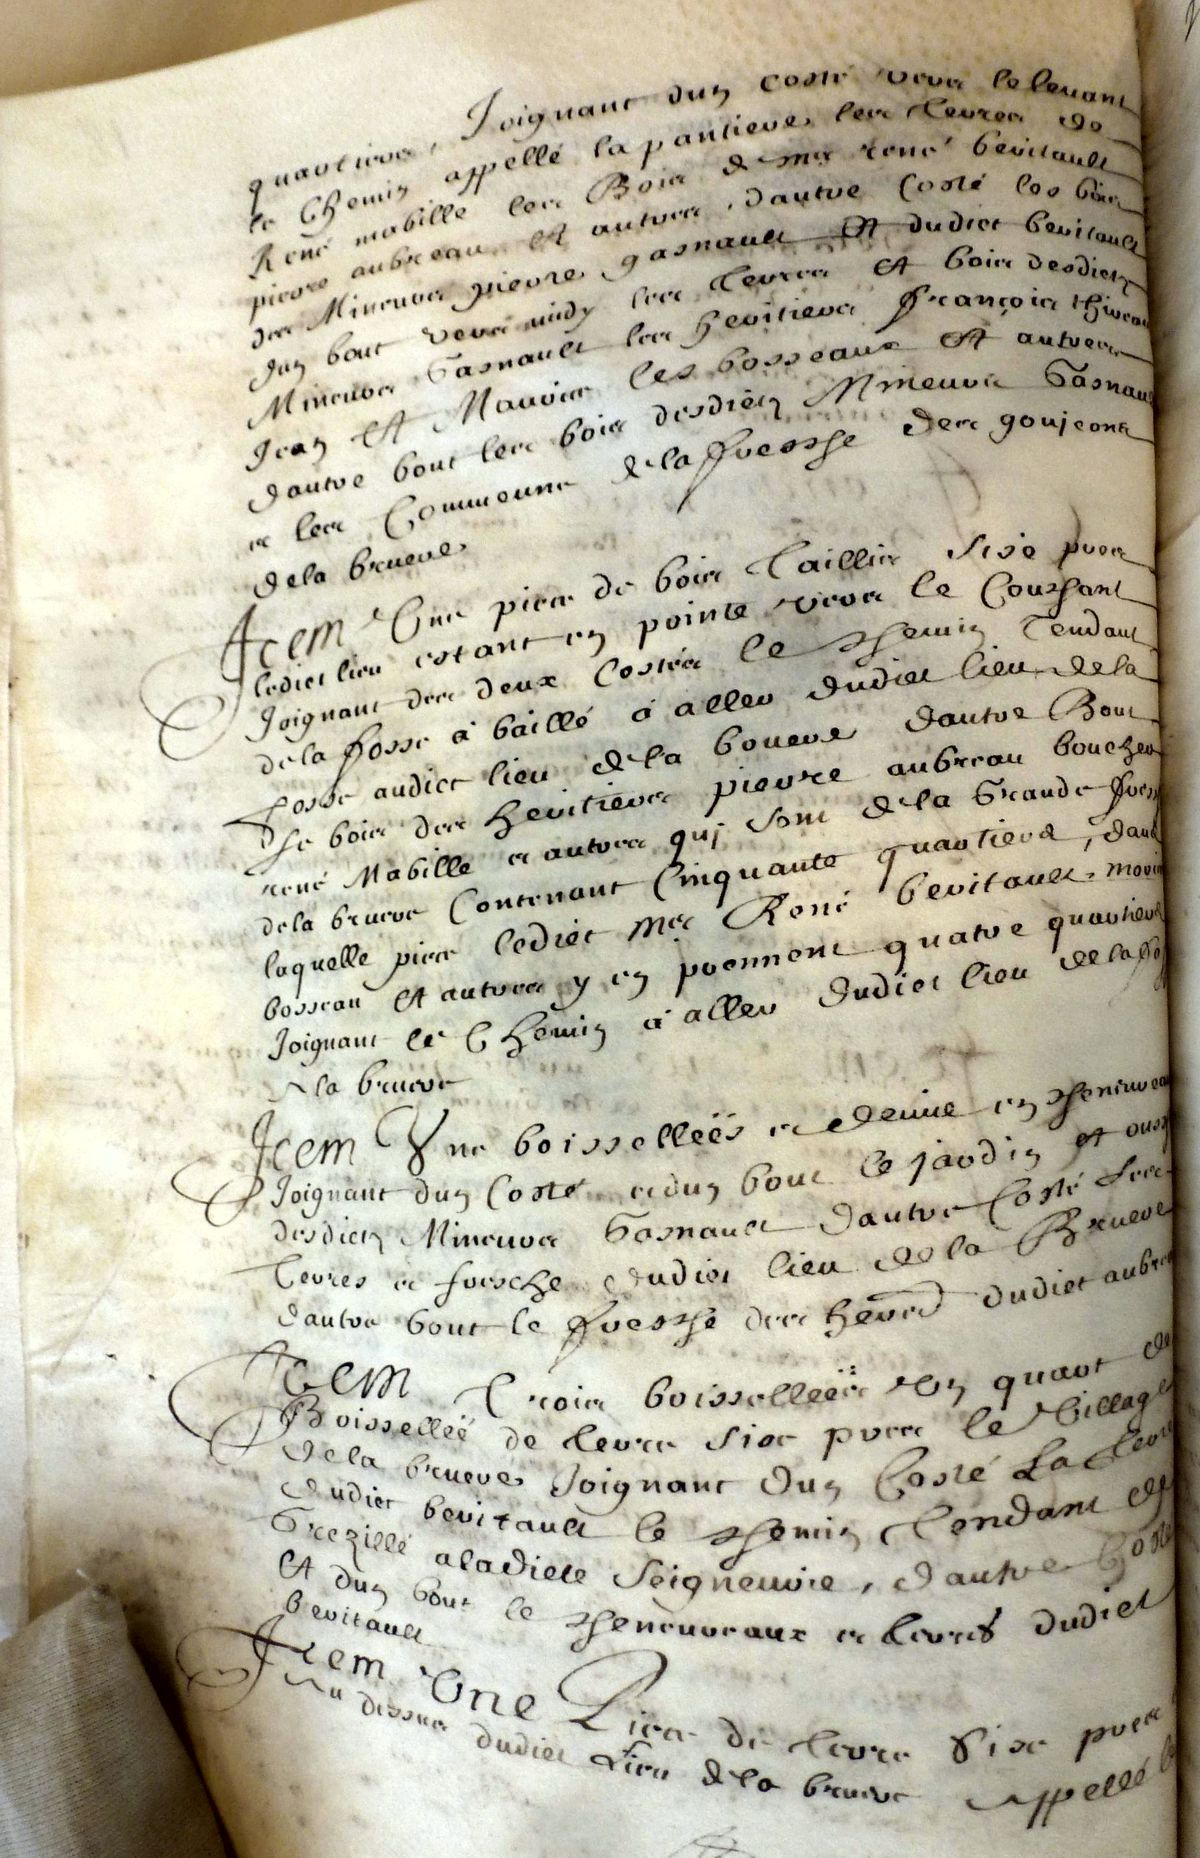 quartiers, Joignant dun costé vers le levant
le Chemin appellé la pantiere, les terres de
René mabille les Bois de Mre rené beritault
pierre aubreau et autres, dautre Costé les bois
des Mineurs pierre gasnault et dudict beritault
dun bout vers midy les terres et bois desdictz
Mineurs Gasnault les heritiers françois thireau
Jean et Maurice les bosseaux et autres
dautre bout les bois desdictz Mineurs Gasnault
et les Communs de la fresche des goujeons
de la bruere
Item Une piece de bois Taillis size pres
ledict lieu estant en pointe vers le Couchant
Joignant des deux Costés le chemin Tendant
de la fosse à baillé à aller dudict lieu de la
fosse audict lieu de la bouere dautre Bout
le bois des heritiers pierre aubreau boucher
rené Mabille et autres quj sont de la Grande
de la bruere Contenant Cinquante quartiers, dans
laquelle piece ledict Mre René beritault,
bosseau et autres y en prennent quatre quartiers
Joignant le Chemin à aller dudict lieu de la
a la bruere
Item Une boissellées et demie en
Joignant dun Costé et dun bout le jardin et
desdictz Mineurs Gasnault dautre Costé les
terres et fresche dudict lieu de la Bruere
dautre bout le fresche des hers dudict
Item Trois boissellées Un quart de
Boissellée de terre size pres le Village
de la bruere Joignant dun Costé La terre
dudict beritault le chemin Tendant de
Grezillé a ladicte Seigneurie, dautre Costé
et dun bout le cheneureaux et terres dudict
beritault
Item Une Piece de terre Size pres
au dessus dudict Lieu de la bruere appellé